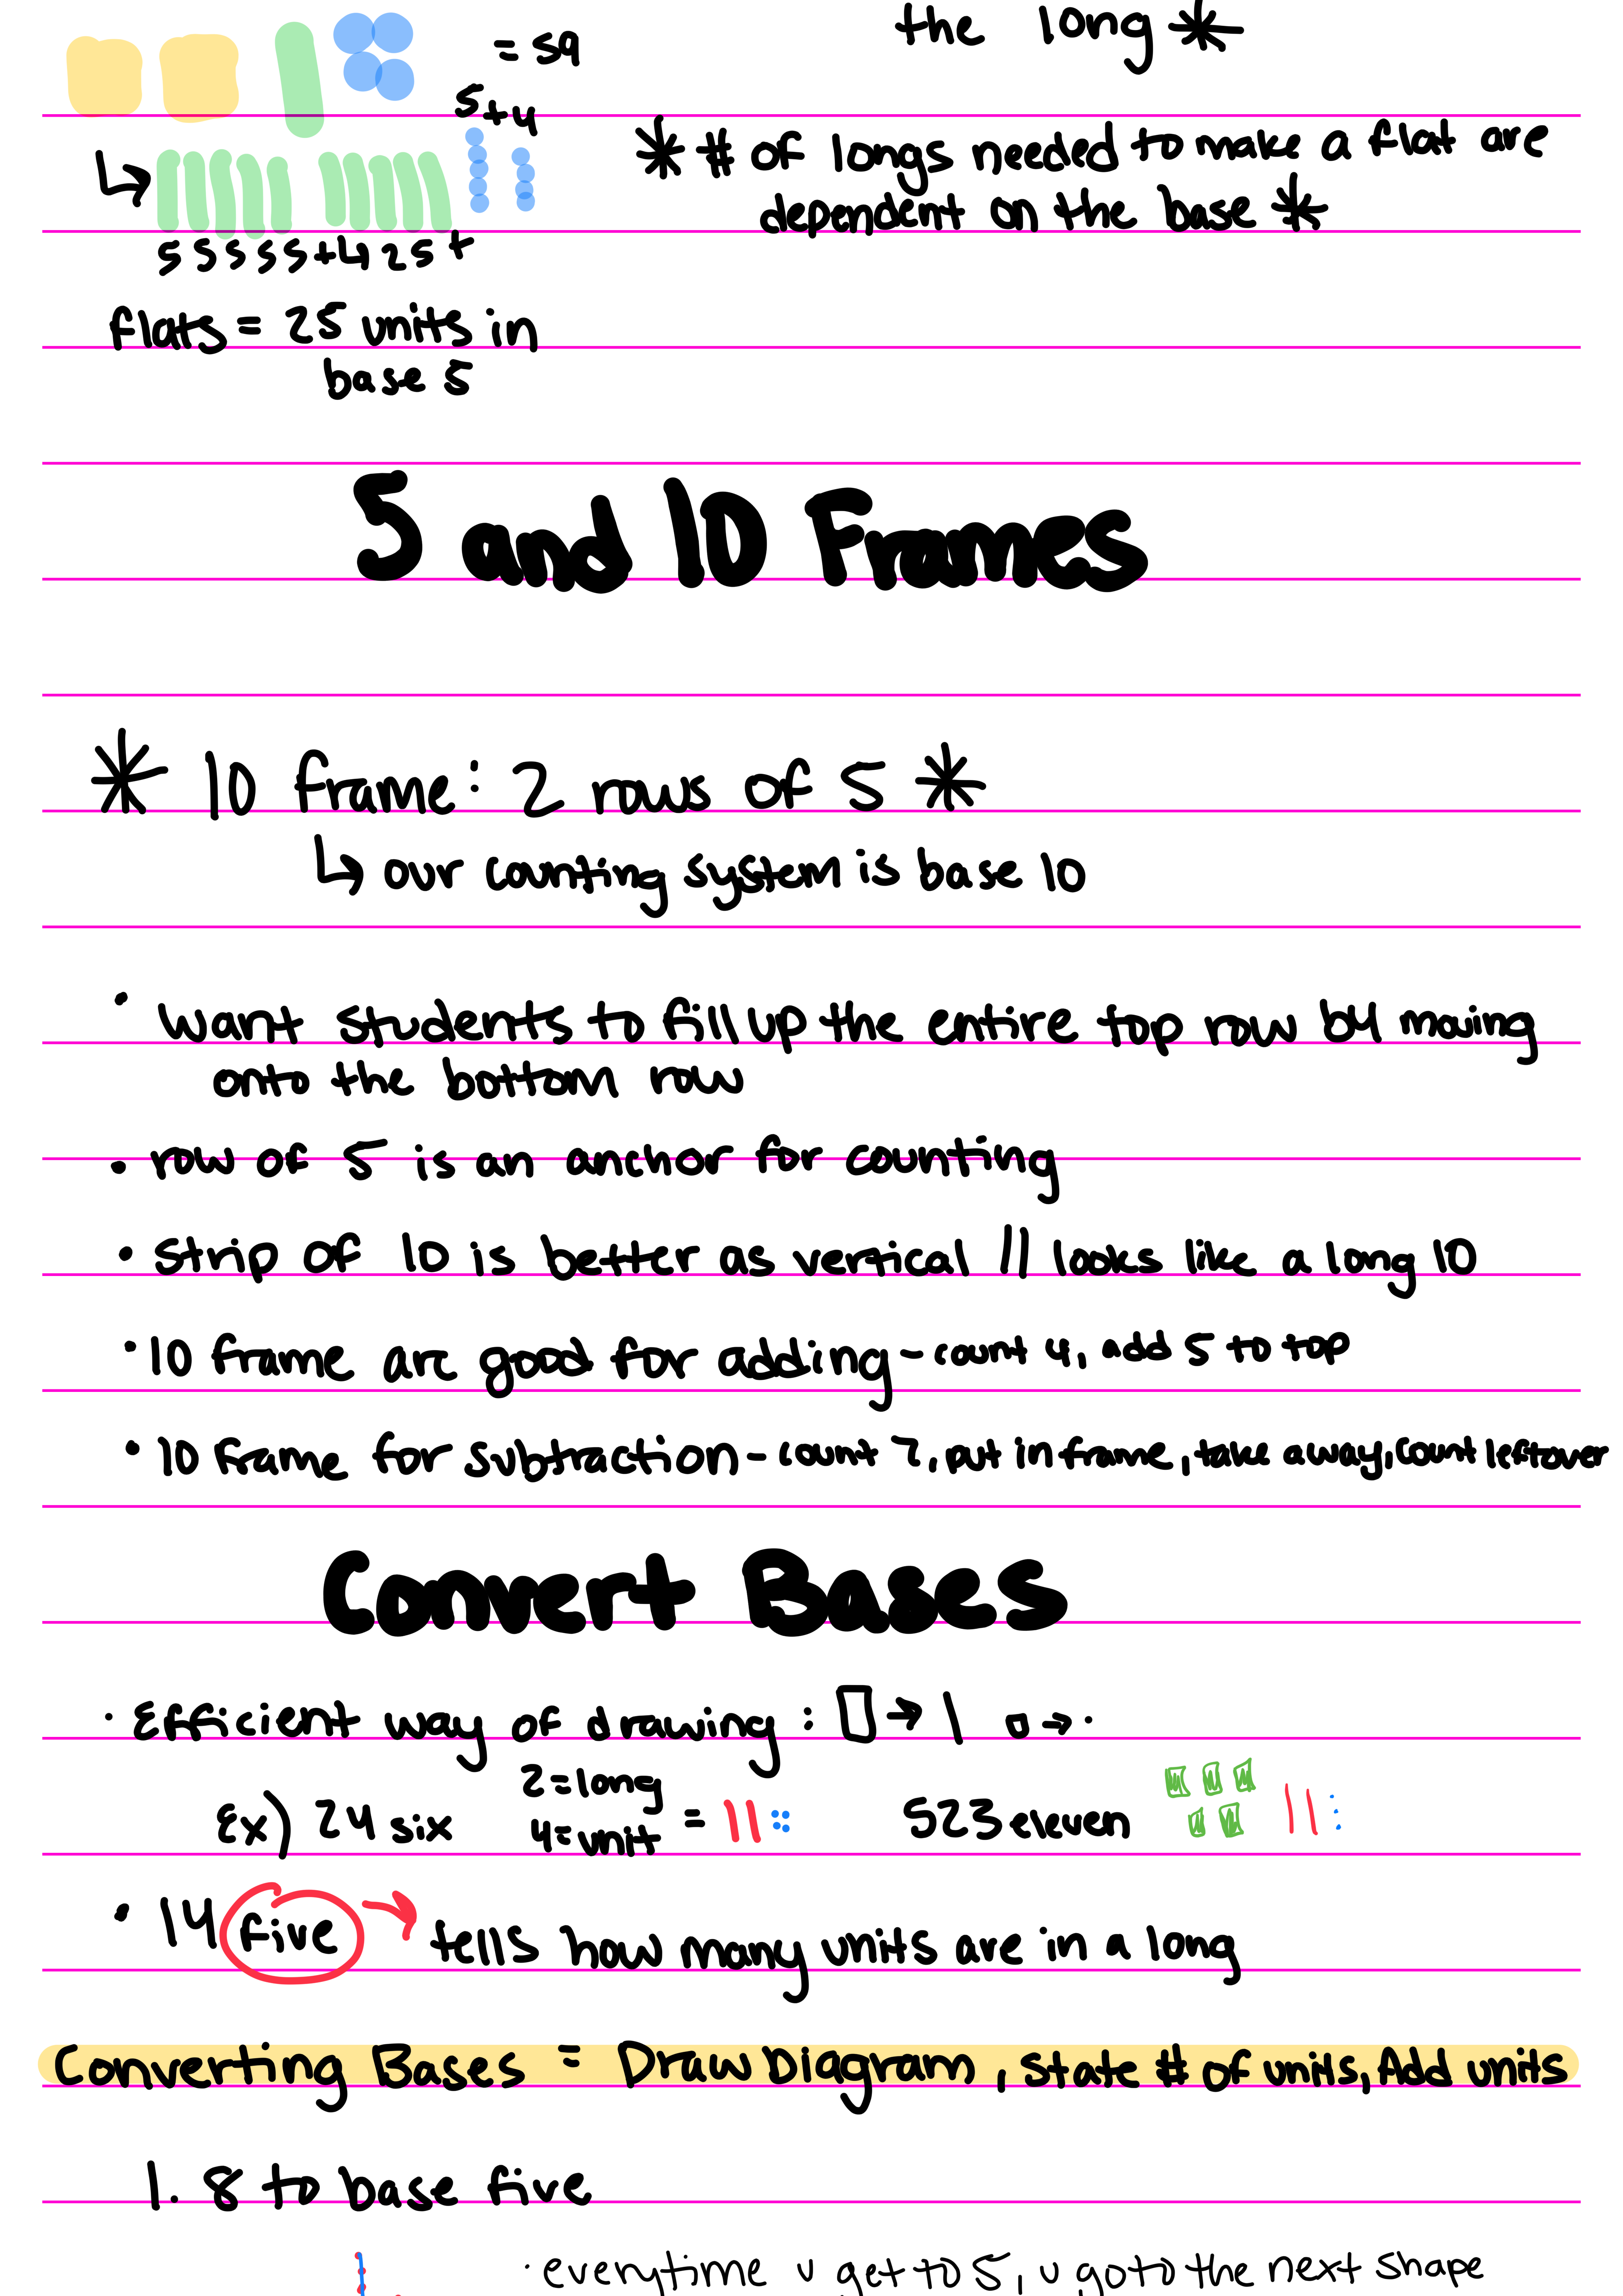 the long *
= 59
5+4
* # of longs needed to make a flat are
dependent on the base *
5 5 5 5 5 +4 25 +
flats = 25 units in
base 5
5 and 10 Frames
* 10 frame: 2 rows of 5 *
↳ our counting system is base 10
• want students to fill up the entire top row by moving
onto the bottom row
• row of 5 is an anchor for counting
• strip of 10 is better as vertical || looks like a long 10
• 10 frame are good for adding - count 4, add 5 to top
• 10 frame for subtraction - count 7, put in frame, take away, count leftover
Convert Bases
• Efficient way of drawing: ▯ → | ▫ → •
Ex) 24 six 2=long 4=unit = || :: 523 eleven
• 14 five → tells how many units are in a long
Converting Bases = Draw Diagram, state # of units, Add units
1. 8 to base five
• everytime u get to 5, u go to the next shape